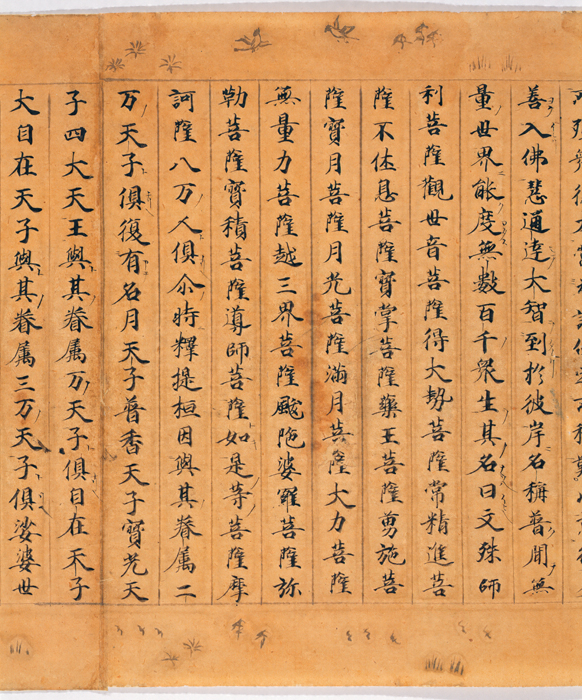 善入佛慧通達大智到於彼岸名稱普聞無
量世界能度無數百千衆生其名曰文殊師
利菩薩觀世音菩薩得大勢菩薩常精進菩
薩不休息菩薩寶掌菩薩藥王菩薩勇施菩
薩寶月菩薩月光菩薩滿月菩薩大力菩薩
無量力菩薩越三界菩薩颰陁婆羅菩薩弥
勒菩薩寶積菩薩導師菩薩如是等菩薩摩
訶薩八万人俱尒時釋提桓因與其眷屬二
万天子俱復有名月天子普香天子寶光天
子四大天王與其眷屬万天子俱自在天子
大自在天子與其眷屬三万天子俱娑婆世